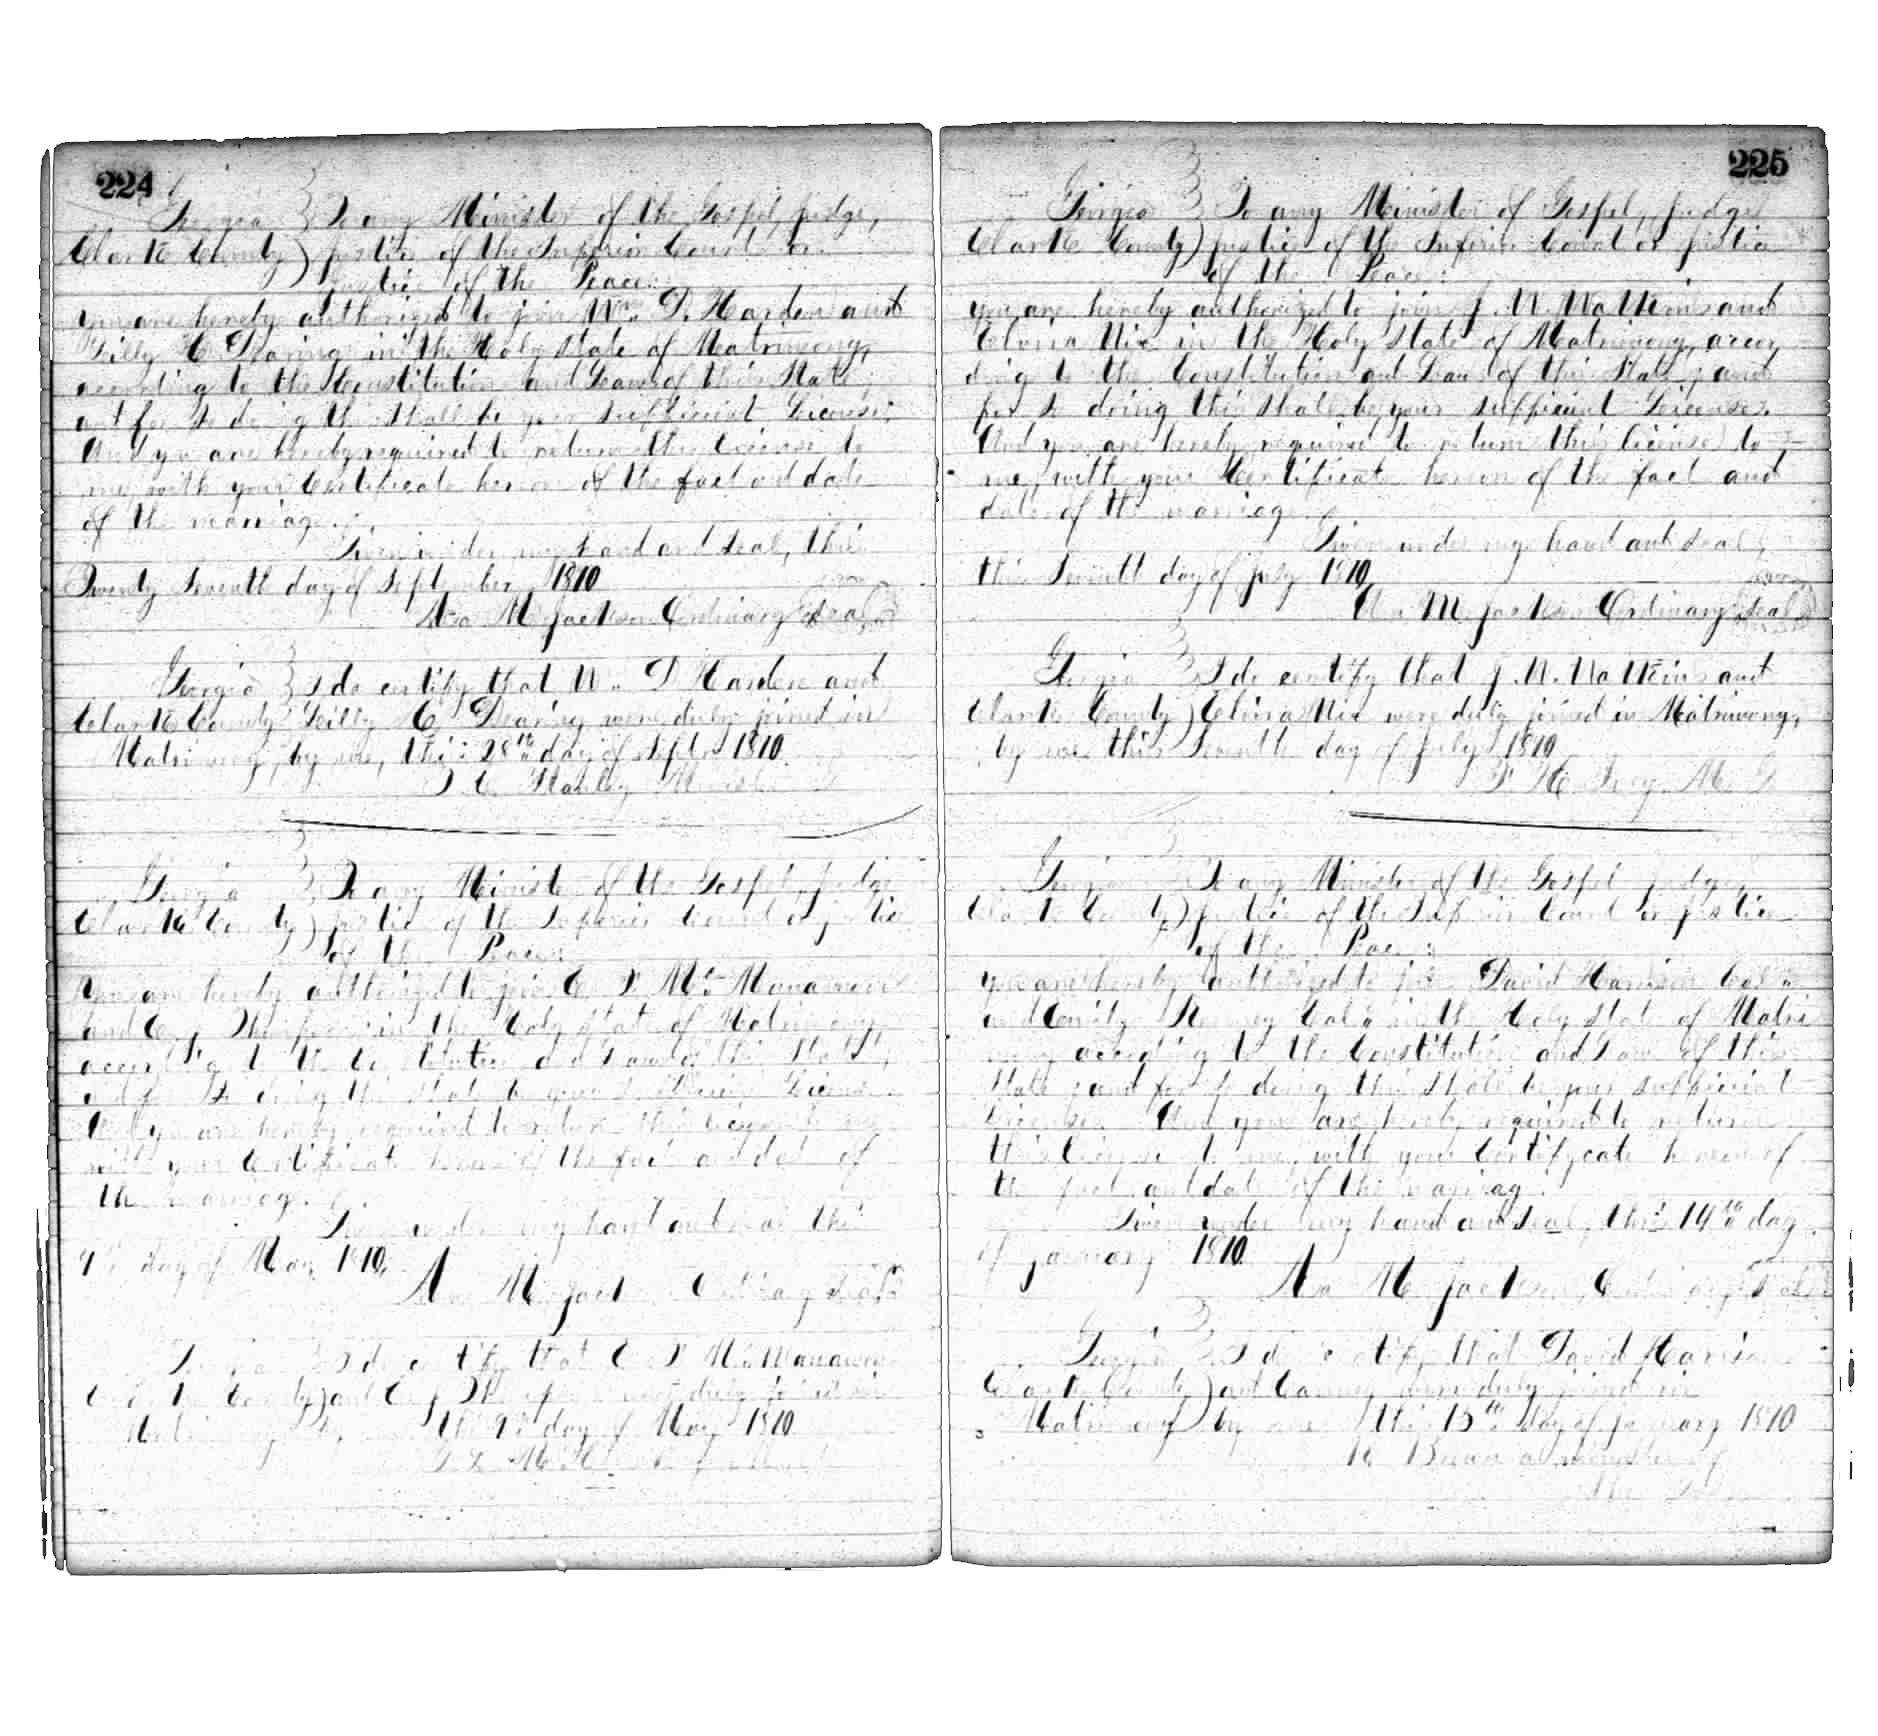 224
Georgia } To any Minister of the Gospel, judge,
Clarke County ) justice of the Inferior Court or
justice of the Peace:
You are hereby authorized to join Wm. D. Harden and
Lilly C. Dearing in the Holy state of Matrimony,
according to the Constitution and Laws of this State;
and for so doing this shall be your sufficient License;
And you are hereby required to return this License to
me, with your Certificate hereon of the fact and date
of the marriage.
Given under my hand and seal, this
Twenty Seventh day of September 1870
Asa M. Jackson Ordinary Seal
Georgia } I do certify that Wm. D Harden and
Clarke County Lilly C Dearing were duly joined in
Matrimony, by me, this 28th day of Sept. 1870.
Georgia } To any Minister of the Gospel, judge
Clarke County ) justice of the Inferior Court or justice
of the Peace:
You are hereby authorized to join
in the Holy state of Matrimony,
according to the Constitution and Laws of this State,
and for so doing this shall be your sufficient License.
And you are hereby required to return this license to me
with your Certificate hereon of the fact and date of
the marriage.
Given under my hand and seal this
day of May 1870,
Asa M. Jackson Ordinary Seal
Georgia } I do certify that
Clarke County ) and were duly joined in
Matrimony by me this day of May 1870
225
Georgia } To any Minister of Gospel, judge
Clarke County ) justice of the Inferior Court or justice
of the Peace:
you are hereby authorized to join J. W. Watkins and
Elvira Nix in the Holy state of Matrimony, accor
ding to the Constitution and Laws of this State; and
for so doing this shall be your sufficient License.
And you are hereby required to return this license to
me, with your Certificate hereon of the fact and
date of the marriage.
Given under my hand and seal,
this Seventh day of July 1870
Asa M. Jackson Ordinary Seal
Georgia } I do certify that J. W. Watkins and
Clarke County ) Elvira Nix were duly joined in Matrimony,
by me this Seventh day of July 1870
Georgia } To any Minister of the Gospel judge,
Clarke County ) justice of the Inferior Court or justice
of the Peace:
you are hereby authorized to join David Harrison
and in the Holy state of Matri
mony according to the Constitution and Laws of this
State; and for so doing this shall be your sufficient
License. And you are hereby required to return
this license to me, with your Certificate hereon of
the fact and date of the marriage.
Given under my hand and seal, this 14th day
of January 1870
Asa M. Jackson, Ordinary Seal
Georgia } I do certify that David Harrison
Clarke County ) and were duly joined in
Matrimony by me this 15th day of January 1870